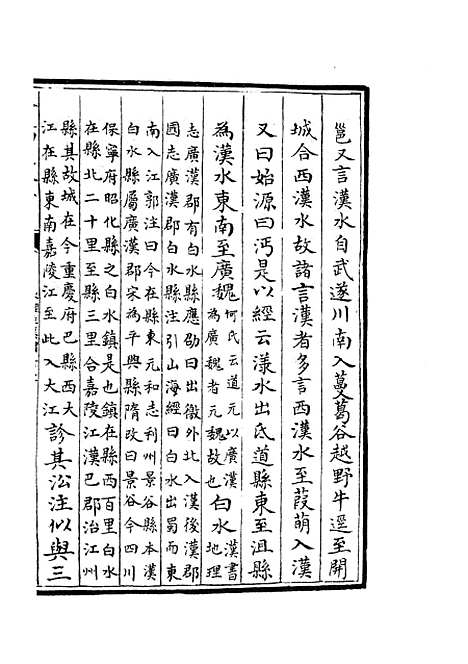 邕又言漢水自武遂川南入蔓葛谷越野牛逕至開
城合西漢水故諸言漢者多言西漢水至葭萌入漢
又曰始源曰沔是以經云漾水出氐道縣東至沮縣
為漢水東南至廣魏何氏云道元以廣漢為廣魏者元魏故也白水漢書地理
志廣漢郡有白水縣應劭曰出徼外北入漢後漢郡
國志廣漢郡白水縣注引山海經曰白水出蜀而東
南入江郭注曰今在縣東元和志利州景谷縣本漢
白水縣屬廣漢郡宋為平興縣隋改曰景谷今四川
保寧府昭化縣之白水鎮是也鎮在縣西百里白水
在縣北二十里至縣三里合嘉陵江漢巴郡治江州
縣其故城在今重慶府巴縣西大
江在縣東南嘉陵江至此入大江診其沿注似與三